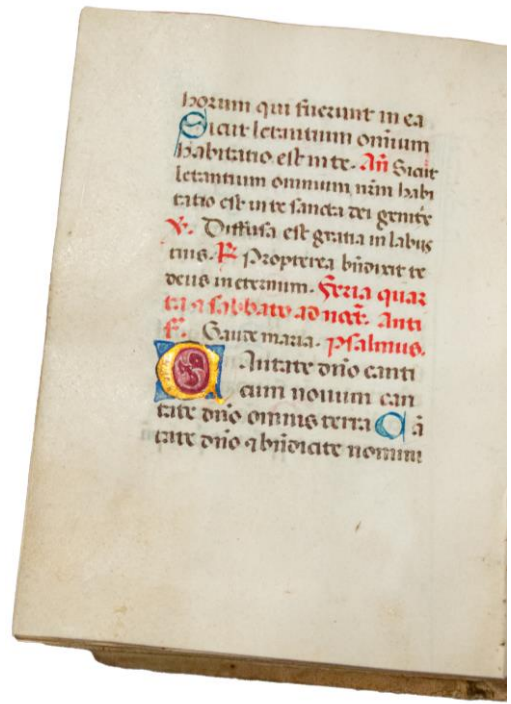 horum qui fuerunt in ea
Sicut letantium omnium
habitatio est in te. An̄ Sicut
letantium omnium nr̄m habi
tatio est in te sancta dei genitͤ
℣. Diffusa est gratia in labijs
tuis. ℟. Propterea bn̄dixit te
deus in eternum. Feria quar
ta ⁊ sabbato ad noct̄. Anti
f̄. Gaude maria. Psalmus.
CAntate dn̄o canti
cum nouum can
tate dn̄o omnis terra Cā
tate dn̄o ⁊ bn̄dicite nomini